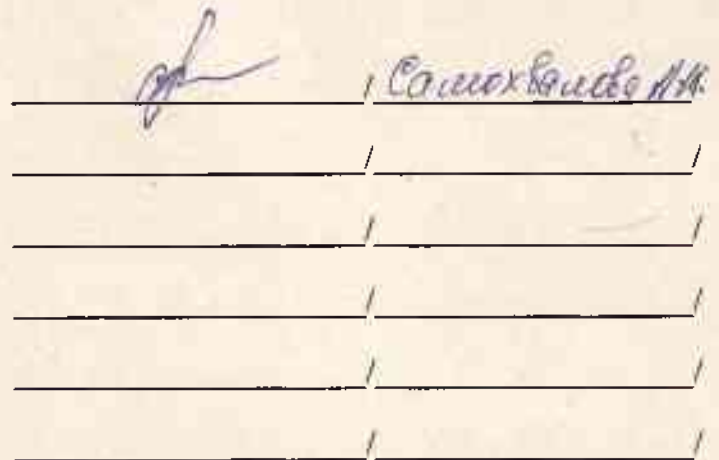 / Самохвалова
/ /
/ /
/ /
/ /
/ /